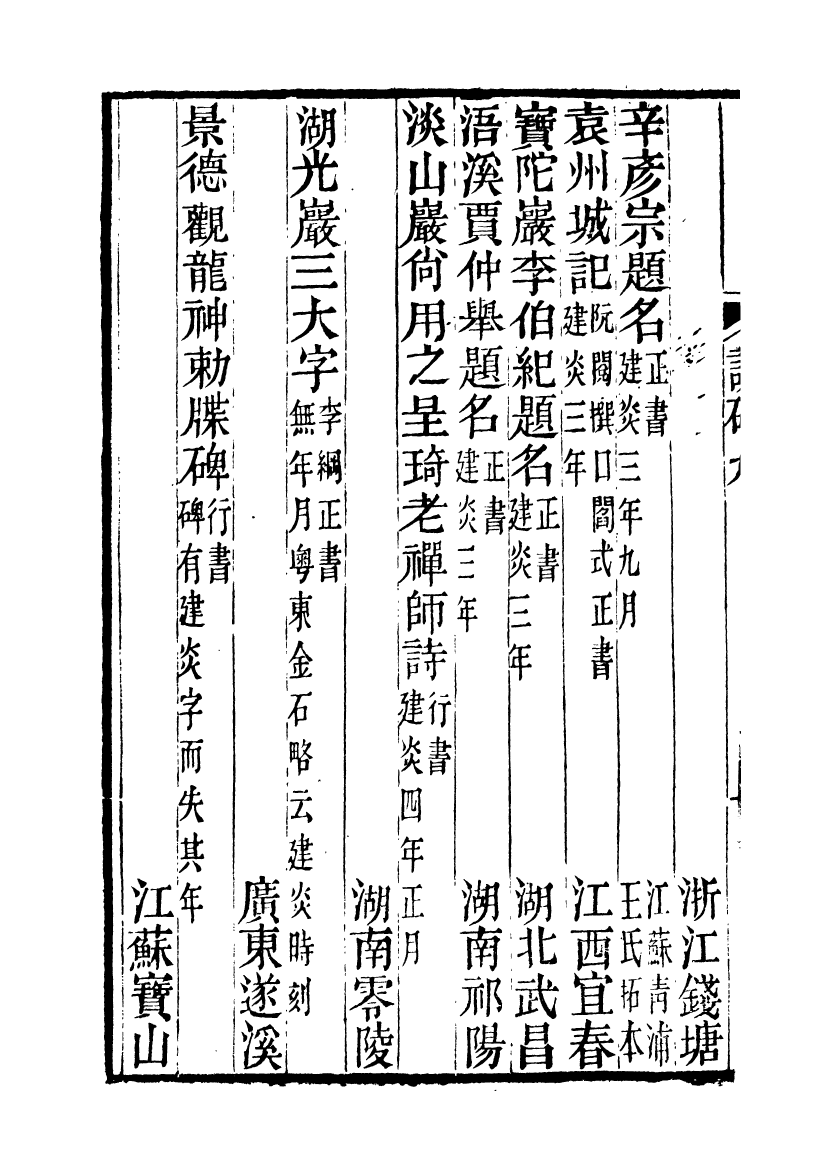 浙江錢塘
辛彥宗題名正書建炎三年九月江蘇青浦王氏拓本
袁州城記阮閱撰口閻式正書建炎三年江西宜春
寶陀巖李伯紀題名正書建炎三年湖北武昌
浯溪賈仲舉題名正書建炎三年湖南祁陽
淡山巖尙用之呈琦老禪師詩行書建炎四年正月
湖南零陵
湖光巖三大字李綱正書無年月粵東金石略云建炎時刻
廣東遂溪
景德觀龍神勅牒碑行書碑有建炎字而失其年
江蘇寶山